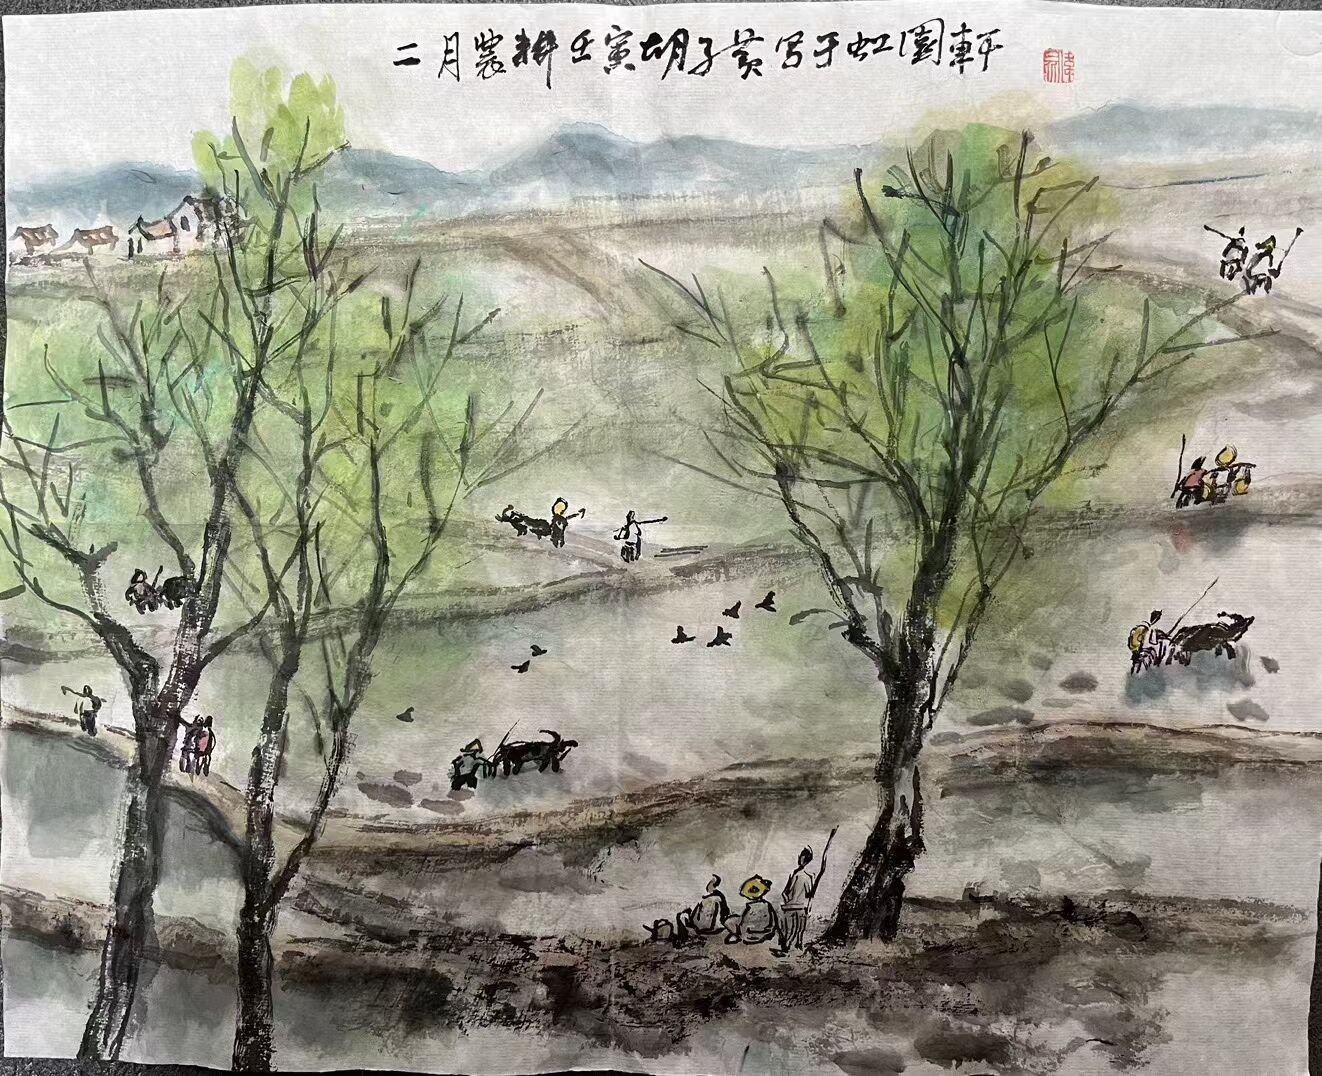 二月農耕壬寅胡子黄写于虹園軒